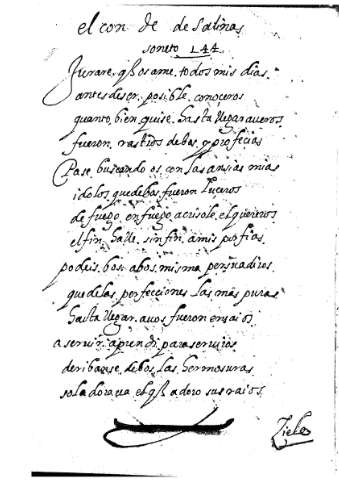 el conde de salinas
soneto 144
Jurare q̃ os ame todos mis dias
antes de ser posible conoçeros
quanto bien quise hasta llegar a veros
fueron rastros de bos y profeçias
Pase buscando os con las ansias mias
idolos que de bos fueron luçeros
de fuego en fuego acrisole el quereros
el fin halle sin fin a mis porfias
podeis bos a bos misma persuadiros
que de las perfecciones las mas puras
hasta llegar a vos fueron ensaios
a servir aprendi para serviros
deribanse de bos las hermosuras
sol adorava el q̃ adoro sus raios